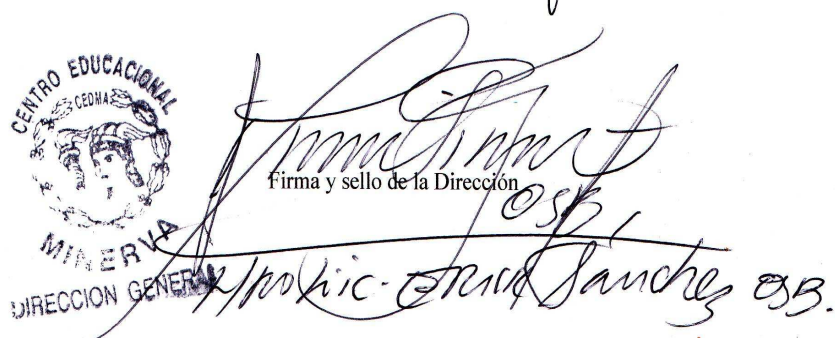 CENTRO EDUCACIONAL
CEDMA
MINERVA
DIRECCION GENERAL
Firma y sello de la Dirección
OSB,
Lic. Erick Sánchez OSB.